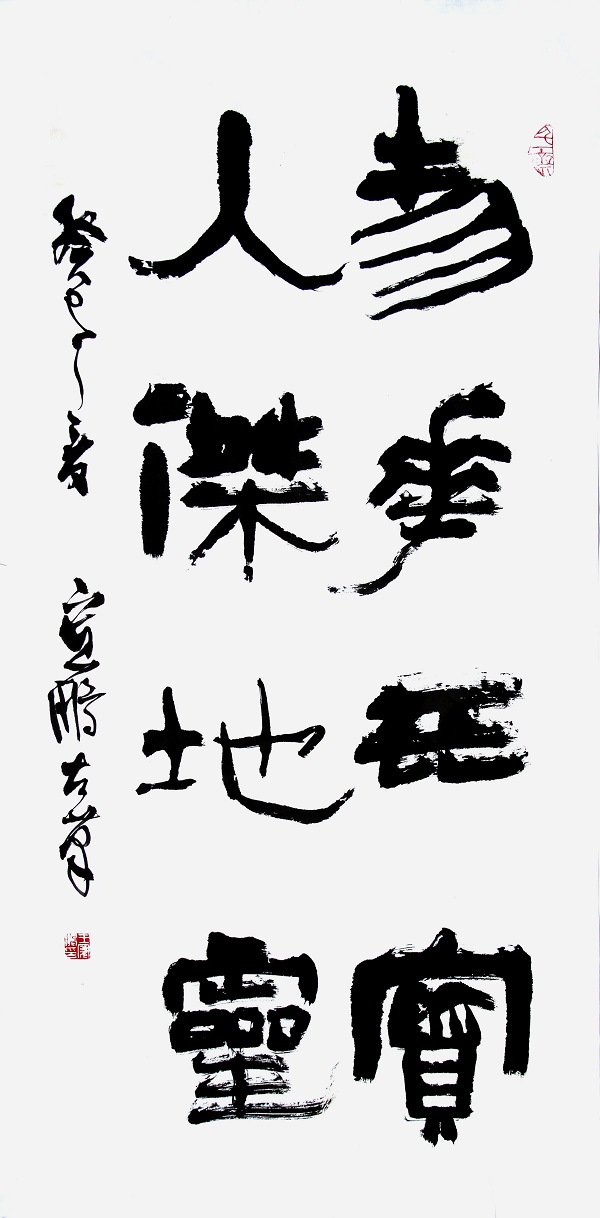 物華天寶
人傑地靈
癸巳之春 宣鵬左筆